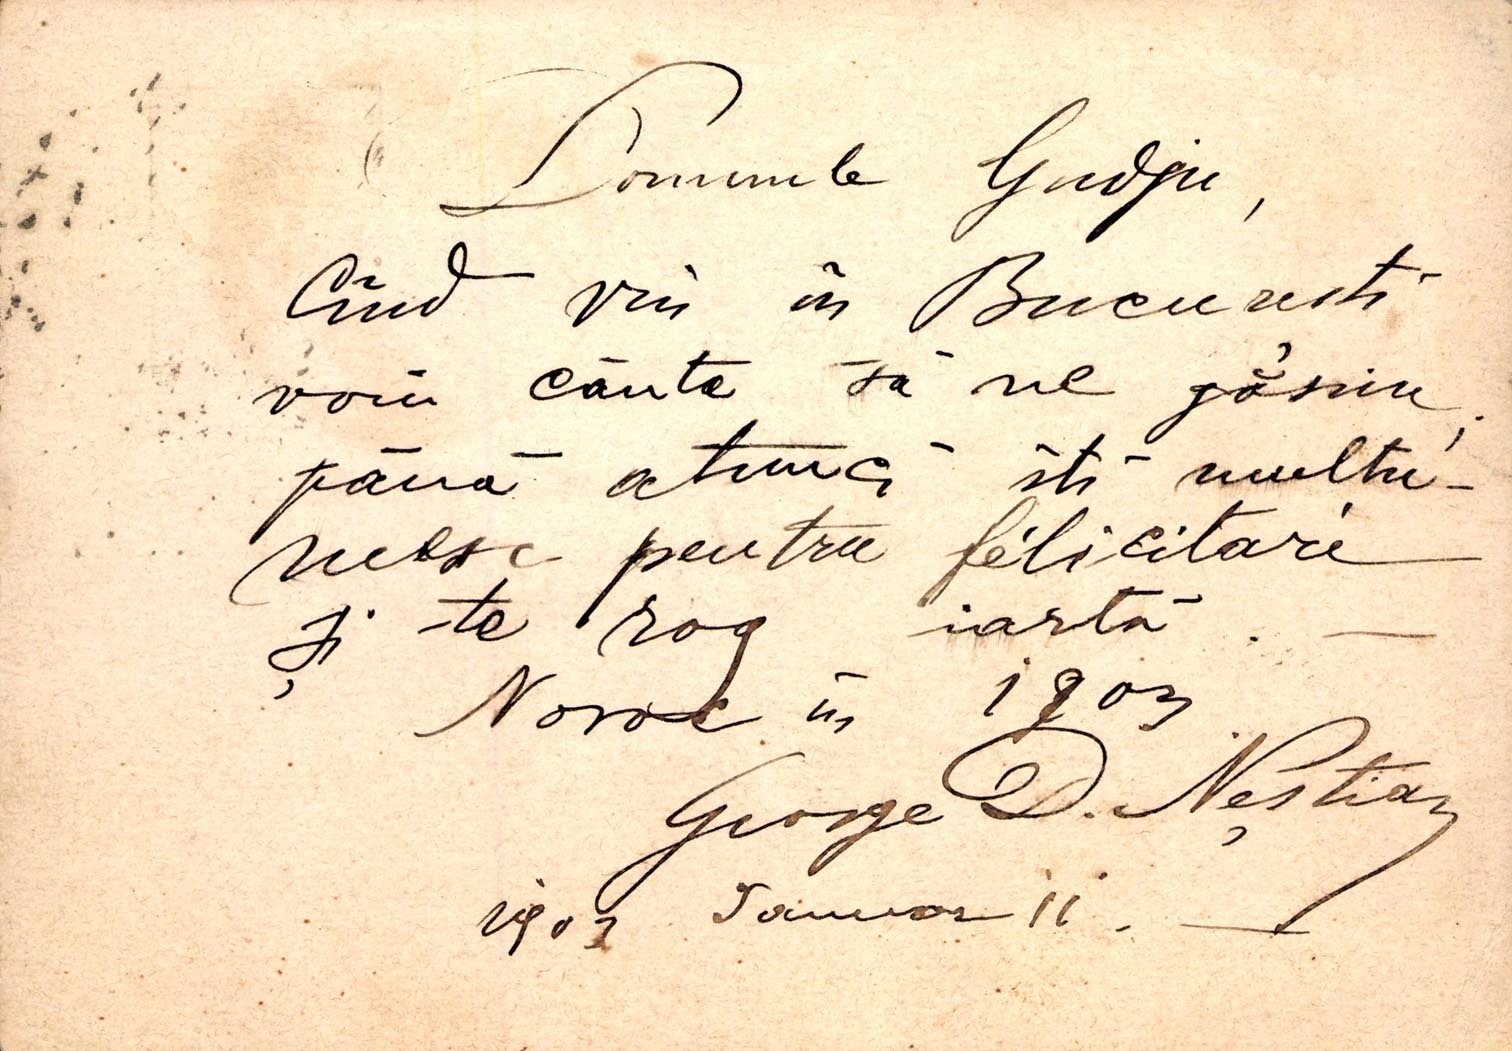 Domnule Gudju,
Cînd vin în Bucuresti
voiu cánta să ne găsim,
pănă atunci iti multu-
nesc pentru felicitare
și te rog iartă. —
Noroc în 1903
George D. Neștian
1903 Januar 11. —